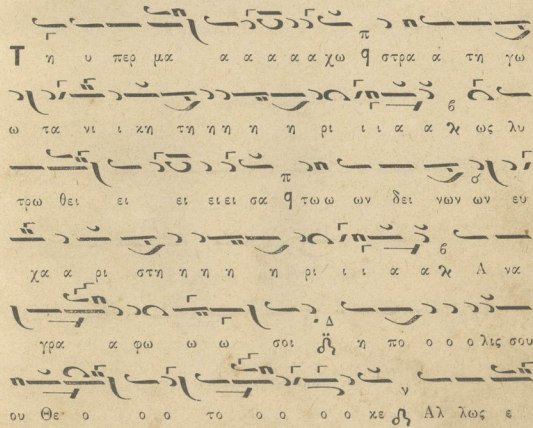 Τ η υ περ μα α α α α α χω π q στρα α τη γω
ω τα νι ι κη τη η η η η ρι ι ι α α β ως λυ
τρω θει ει ει ει ει σα π q τω ω ων δει νων ων ευ
χα α α ρι στη η η η η ρι ι ι α α β Α να
γρα α φω ω ω σοι Δ η πο ο ο ο λις σου
ου Θε ο ο ο το ο ο ο ο κε ν Αλ λως ε